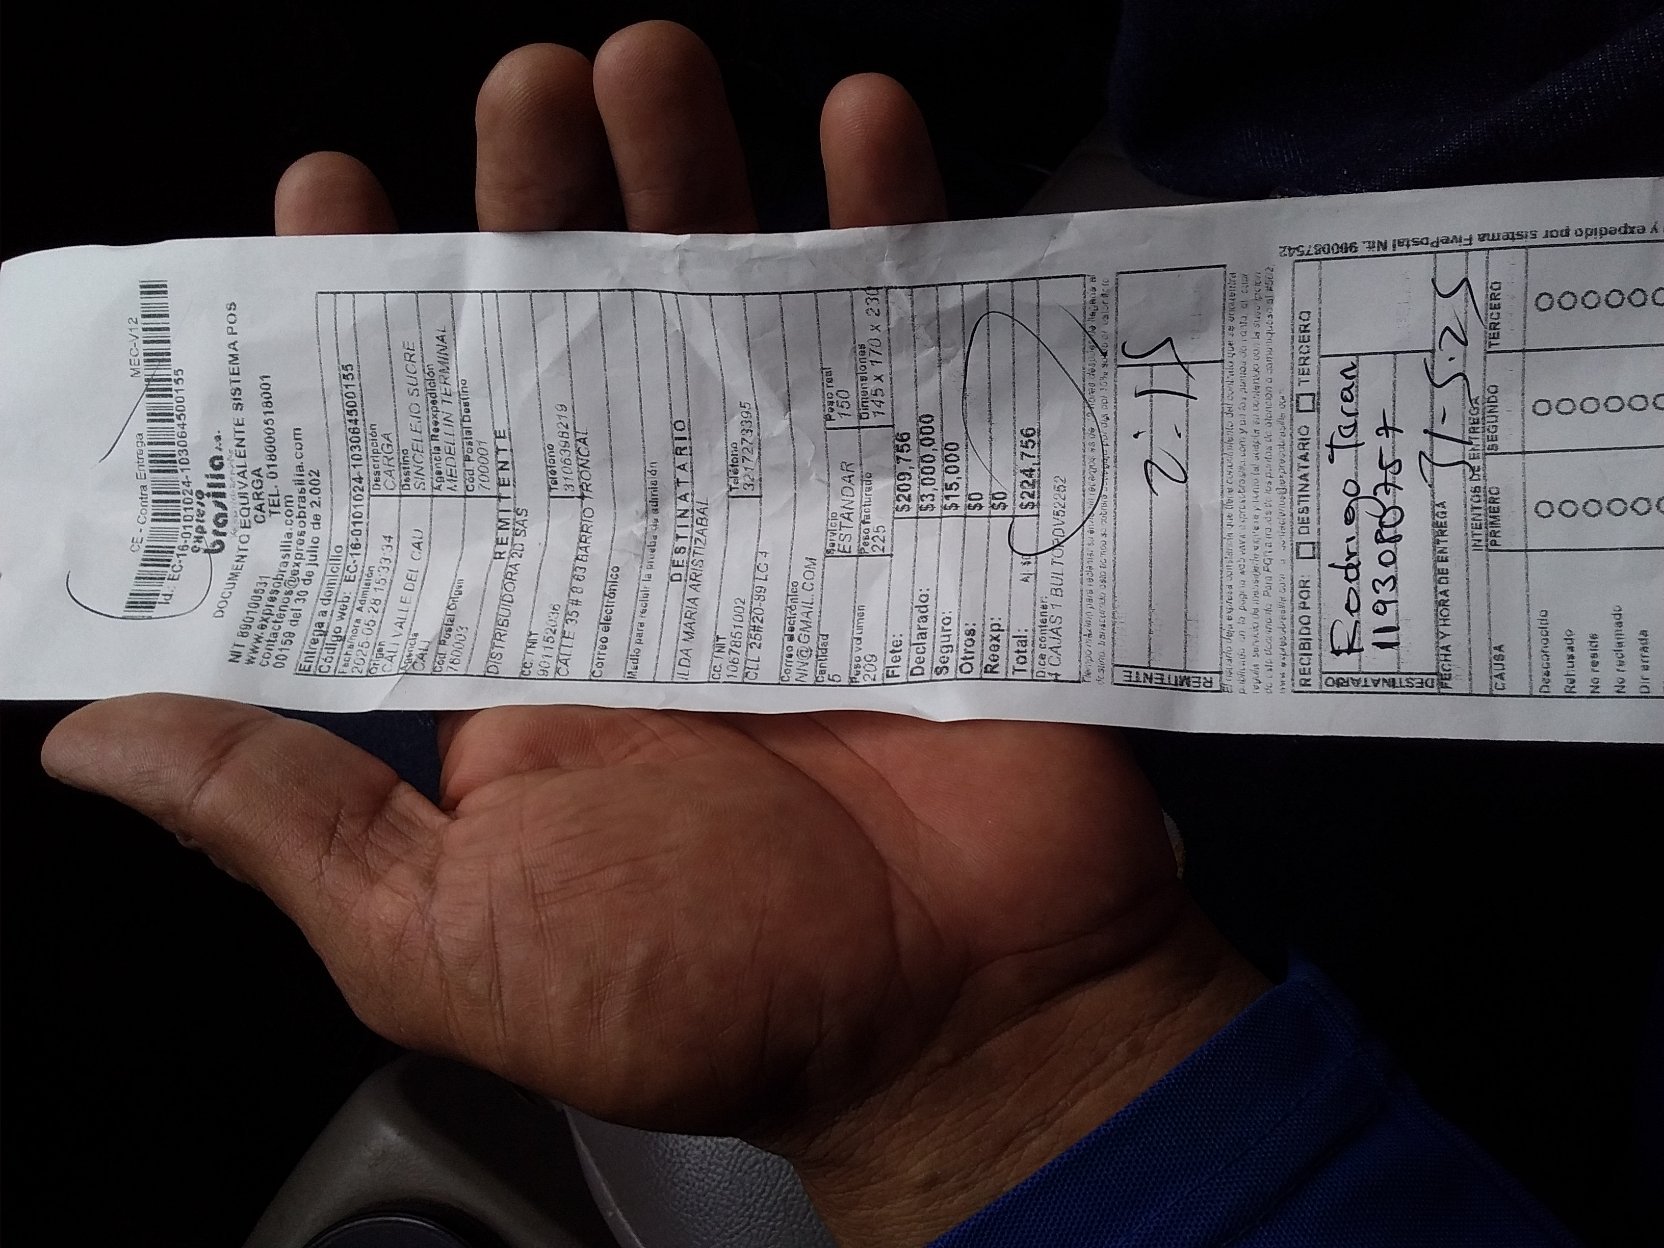 CE - Contra Entrega MEC-V12
Id.: EC-16-0101024-103064500155
expreso
brasilia s.a.
DOCUMENTO EQUIVALENTE SISTEMA POS
NIT 890100531 CARGA
www.expresobrasilia.com TEL. 018000518001
contactenos@expresobrasilia.com
00159 del 30 de julio de 2.002
Entrega a domicilio
Código web: EC-16-0101024-103064500155
Fecha/hora Admisión Descripción
2025-05-28 15:33:34 CARGA
Origen Destino
CALI VALLE DEL CAU SINCELEJO SUCRE
Agencia Agencia Reexpedición
CALI MEDELLIN TERMINAL
Cód. Postal Origen Cód Postal Destino
760003 700001
REMITENTE
DISTRIBUIDORA 2D SAS
CC. / NIT Teléfono
9011522036 3106398219
CALLE 35 # 8 63 BARRIO TRONCAL
Correo electrónico
Medio para recibir la prueba de admisión
DESTINATARIO
ILDA MARIA ARISTIZABAL
CC. / NIT Teléfono
1067851002 3217273395
CLL 25#20-99 LC 4
Correo electrónico
NN@GMAIL.COM
Cantidad Servicio Peso real
5 ESTANDAR 150
Peso volumen Peso facturado Dimensiones
209 225 145 x 170 x 230
Flete: $209,756
Declarado: $3,000,000
Seguro: $15,000
Otros: $0
Reexp: $0
Total: $224,756
Dice contener:
4 CAJAS 1 BULTORDV52252
REMITENTE
2:15
y expedido por sistema FivePostal Nit. 900087542
RECIBIDO POR: DESTINATARIO TERCERO
DESTINATARIO
Rodrigo Taran
1193080757
FECHA Y HORA DE ENTREGA 31-5-25
INTENTOS DE ENTREGA
CAUSA PRIMERO SEGUNDO TERCERO
Desconocido
Rehusado
No reside
No reclamado
Dir errada